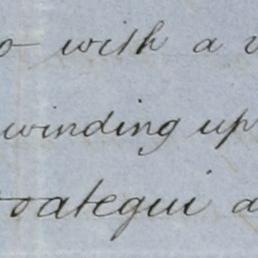 with a
winding up
oategui